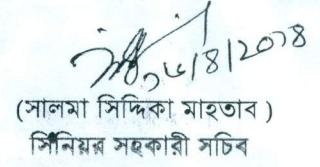 ১৬/৪/2014
(সালমা সিদ্দিকা মাহতাব )
সিনিয়র সহকারী সচিব